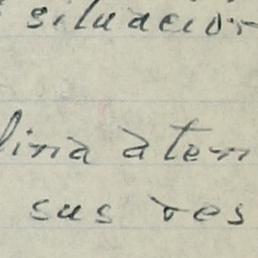 situacion
lina aten
sus res